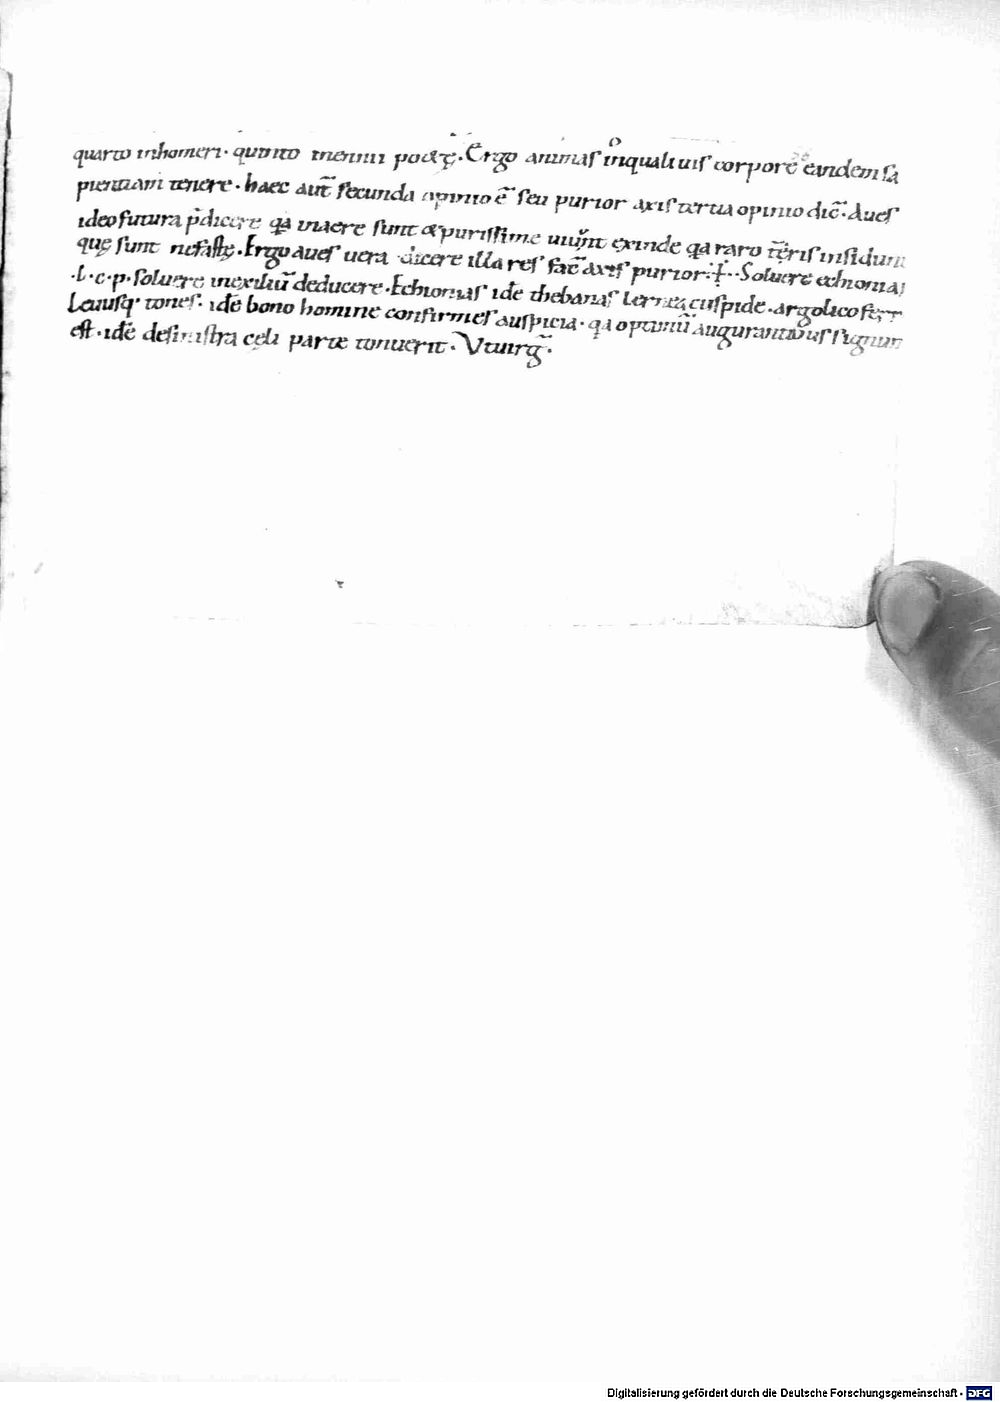 quarto inhomeri· quinto inennii poetę· Ergo animas inqualiuis corpore eandem sa
pientiam tenere· haec aut̄ secunda opinio ē seu purior axis tertia opinio dic̄· Aues
ideo futura p̄dicere qa inaere sunt & purissime uiuunt exinde qa raro t̄ris insidunt
quę sunt nefastę· Ergo aues uera dicere illa res fac̄ axis purior· Soluere echionias
·l·c·p·soluere inexiliū deducere· Echionias idē thebanas lernea cuspide· argolico ferr
Leuusq· tones· idē bono homine confirmes auspicia· qa optimū augurantibus signum
est· idē desinistra cęli parte tonuerit· Vtuirḡ·
Digitalisierung gefördert durch die Deutsche Forschungsgemeinschaft · DFG